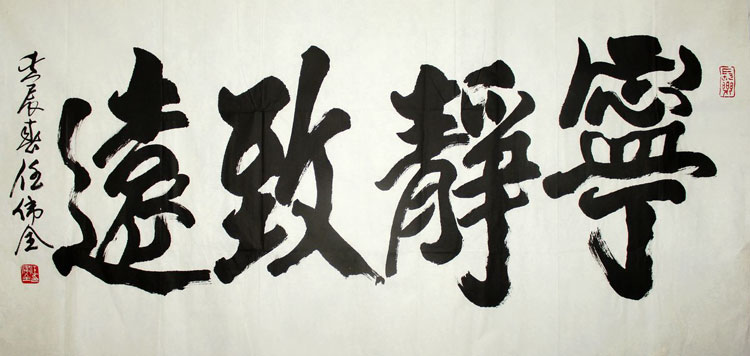 寧靜致遠
壬辰春任伟金